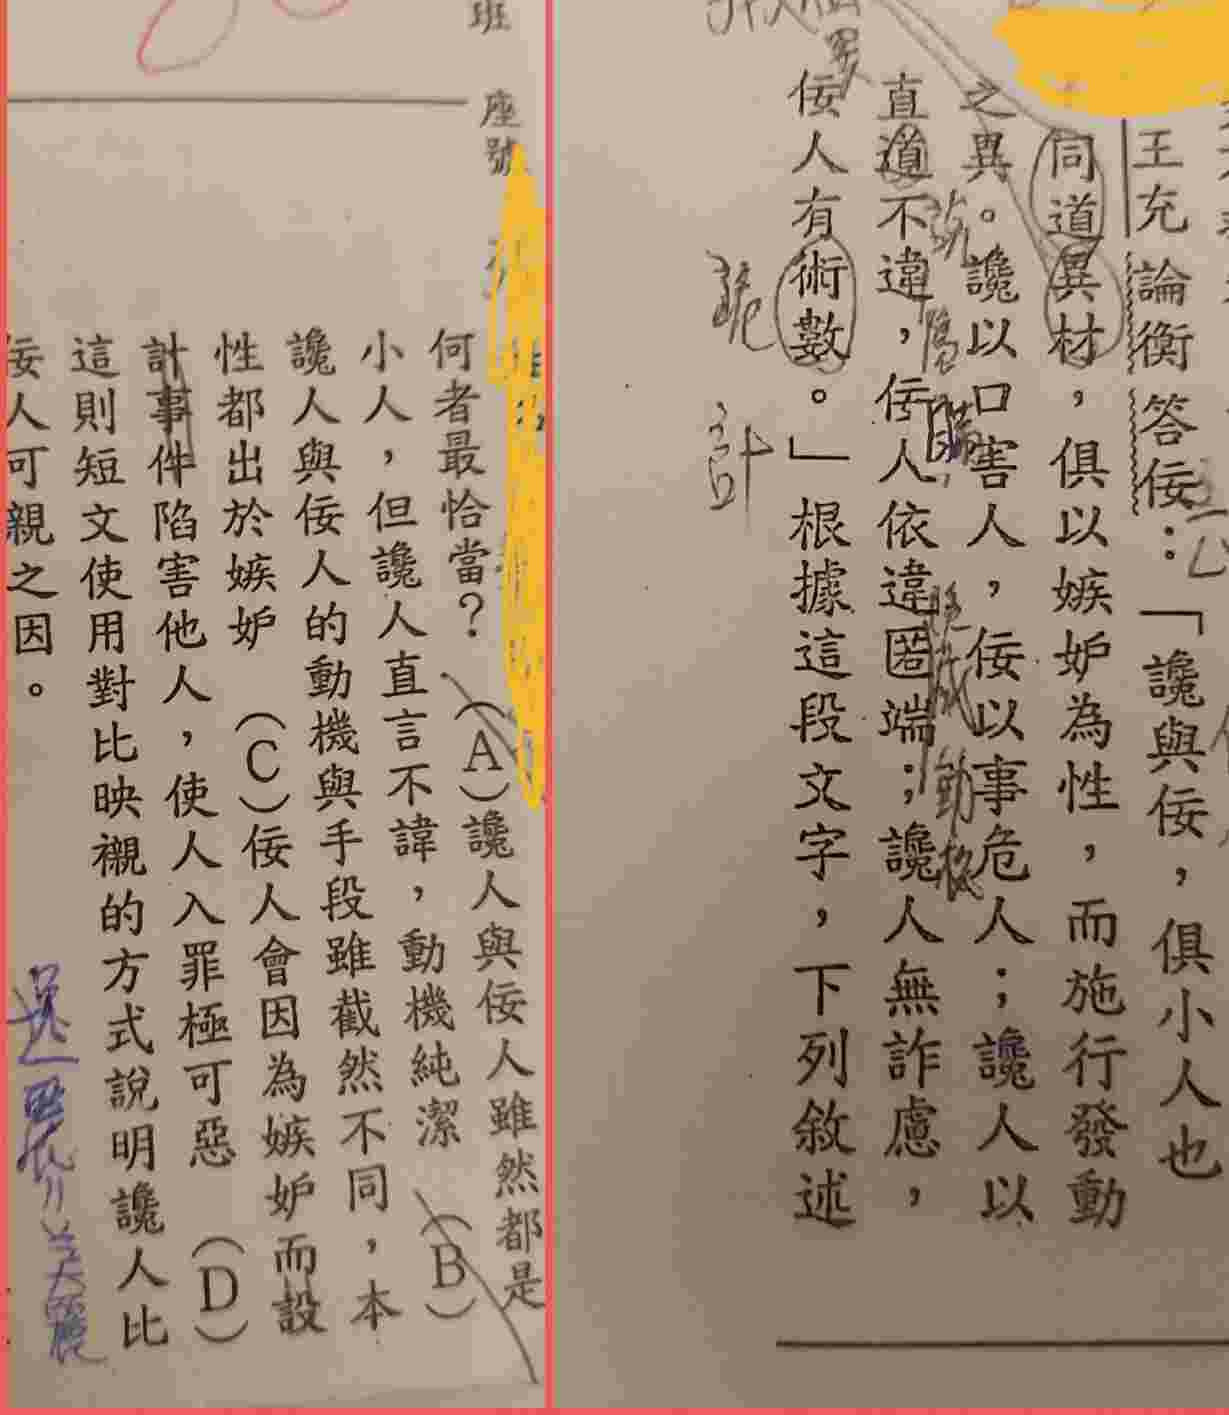 王充論衡答佞：「讒與佞，俱小人也
同道異材，俱以嫉妒為性，而施行發動
之異。讒以口害人，佞以事危人；讒人以
直道不違，佞人依違匿端；讒人無詐慮，
佞人有術數。」根據這段文字，下列敘述
班
座號
何者最恰當？(A)讒人與佞人雖然都是
小人，但讒人直言不諱，動機純潔 (B)
讒人與佞人的動機與手段雖截然不同，本
性都出於嫉妒 (C)佞人會因為嫉妒而設
計事件陷害他人，使人入罪極可惡 (D)
這則短文使用對比映襯的方式說明讒人比
佞人可親之因。
詭
計